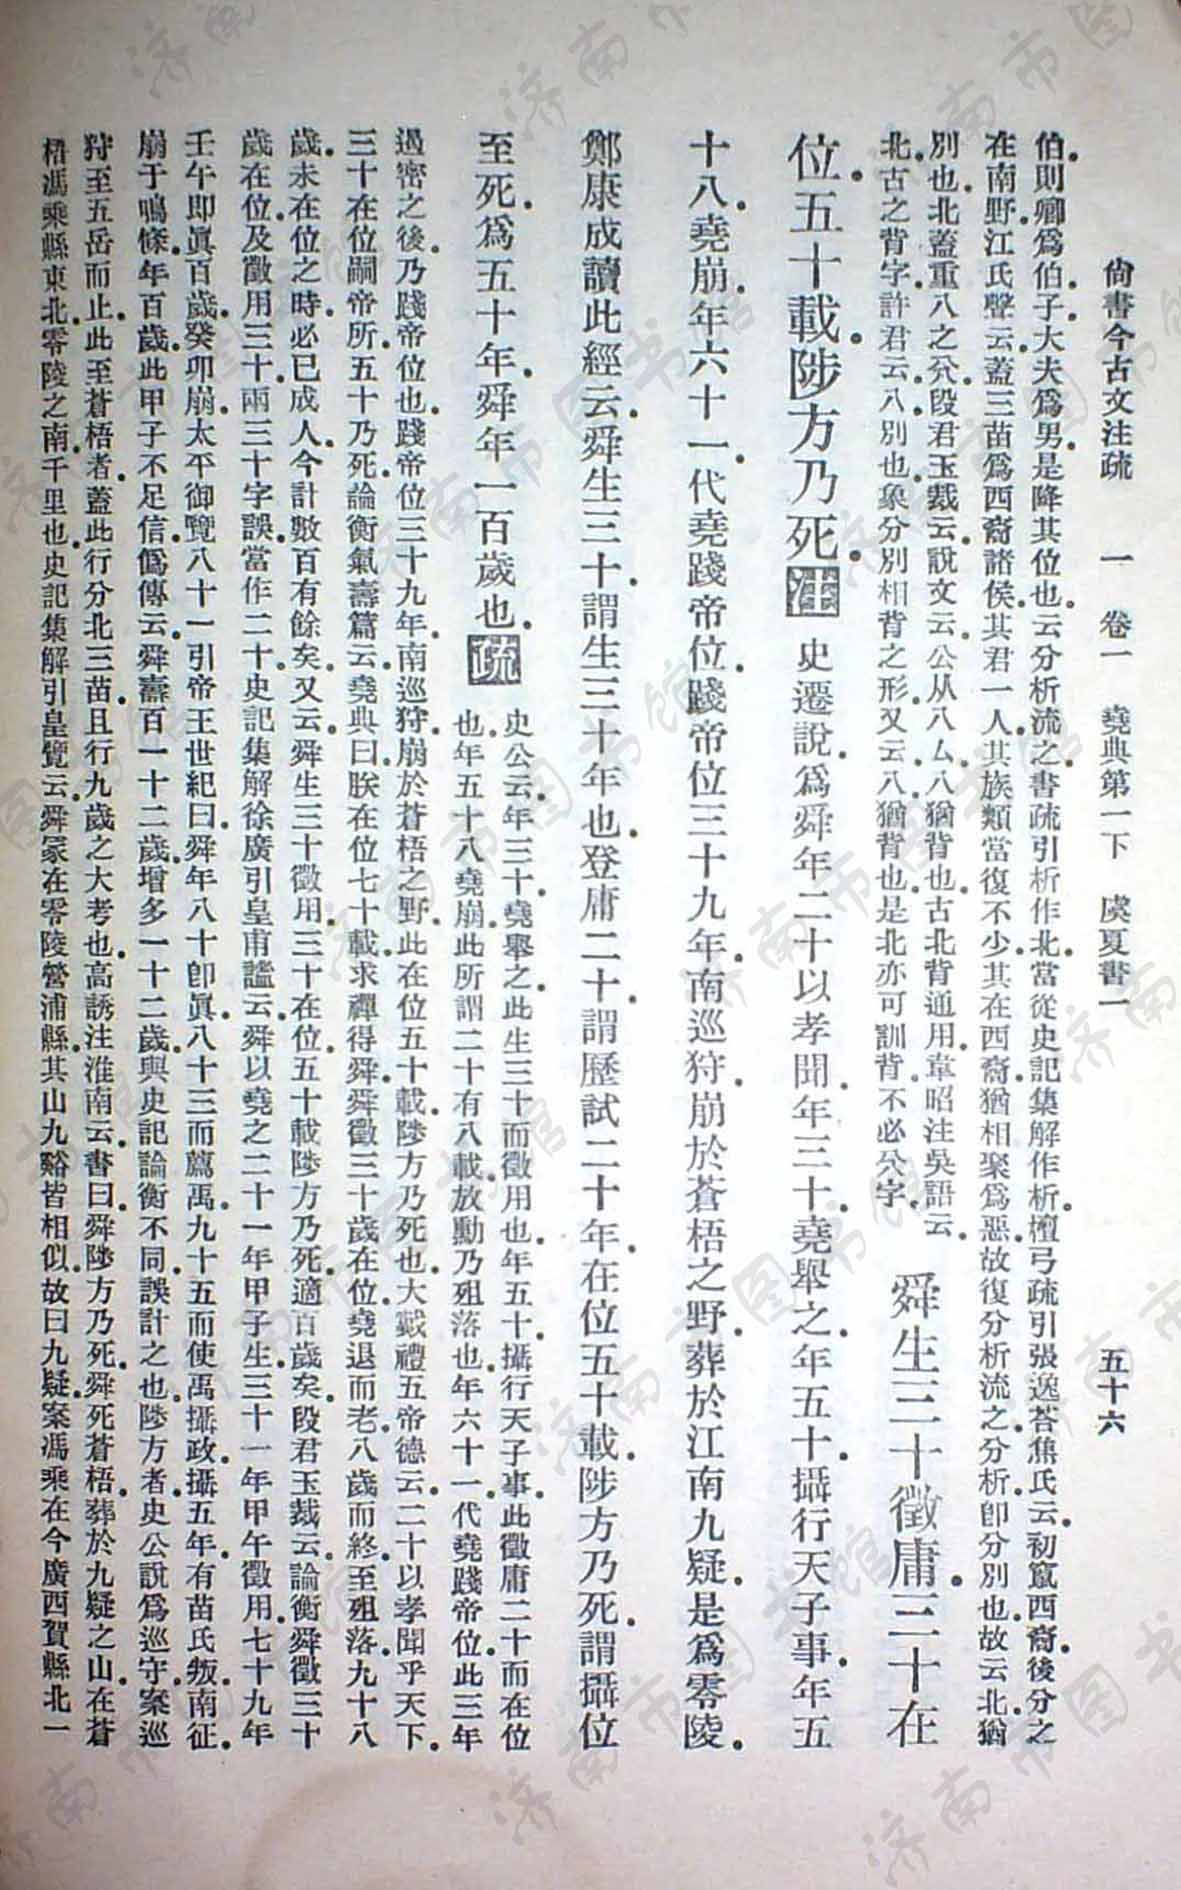 尙書今古文注疏　一　卷一　堯典第一下　虞夏書一　五十六
伯。則卿爲伯。子大夫爲男。是降其位也。云分析流之。書疏引析作北。當從史記集解作析。檀弓疏引張逸荅焦氏云。初竄西裔。後分之
在南野。江氏聲云。蓋三苗爲西裔諸侯。其君一人。其族類當復不少。其在西裔猶相聚爲惡。故復分析流之。分析。卽分別也。故云北。猶
別也。北蓋重八之㕣。段君玉裁云。說文云。公从八厶。八猶背也。古北背通用。韋昭注吳語云。
北。古之背字。許君云。八。別也。象分別相背之形。又云。八。猶背也。是北亦可訓背。不必㕣字。
舜生三十徵庸。三十在
位。五十載。陟方乃死。注　史遷說。爲舜年二十以孝聞。年三十。堯舉之。年五十。攝行天子事。年五
十八。堯崩。年六十一。代堯踐帝位。踐帝位三十九年。南巡狩。崩於蒼梧之野。葬於江南九疑。是爲零陵。
鄭康成讀此經云。舜生三十。謂生三十年也。登庸二十。謂歷試二十年。在位五十載。陟方乃死。謂攝位
至死。爲五十年。舜年一百歲也。疏
史公云年三十。堯舉之。此生三十而徵用也。年五十。攝行天子事。此徵庸二十而在位
也。年五十八堯崩。此所謂二十有八載。放勳乃殂落也。年六十一。代堯踐帝位。此三年
遏密之後。乃踐帝位也。踐帝位三十九年。南巡狩。崩於蒼梧之野。此在位五十載。陟方乃死也。大戴禮五帝德云。二十以孝聞乎天下。
三十在位。嗣帝所。五十乃死。論衡氣壽篇云。堯典曰。朕在位七十載。求禪得舜。舜徵三十歲在位。堯退而老。八歲而終。至殂落。九十八
歲。未在位之時。必已成人。今計數百有餘矣。又云。舜生三十徵用。三十在位。五十載陟方乃死。適百歲矣。段君玉裁云。論衡舜徵三十
歲在位。及徵用三十。兩三十字誤。當作二十。史記集解徐廣引皇甫謐云。舜以堯之二十一年甲子生。三十一年甲午徵用。七十九年
壬午卽眞。百歲癸卯崩。太平御覽八十一引帝王世紀曰。舜年八十卽眞。八十三而薦禹。九十五而使禹攝政。攝五年。有苗氏叛。南征。
崩于鳴條。年百歲。此甲子不足信。僞傳云。舜壽百一十二歲。增多一十二歲。與史記論衡不同。誤計之也。陟方者。史公說爲巡守。案巡
狩至五岳而止。此至蒼梧者。蓋此行分北三苗。且行九歲之大考也。高誘注淮南云。書曰。舜陟方乃死。舜死蒼梧。葬於九疑之山。在蒼
梧馮乘縣東北。零陵之南千里也。史記集解引皇覽云。舜冢在零陵營浦縣。其山九谿皆相似。故曰九疑。案馮乘在今廣西賀縣北一